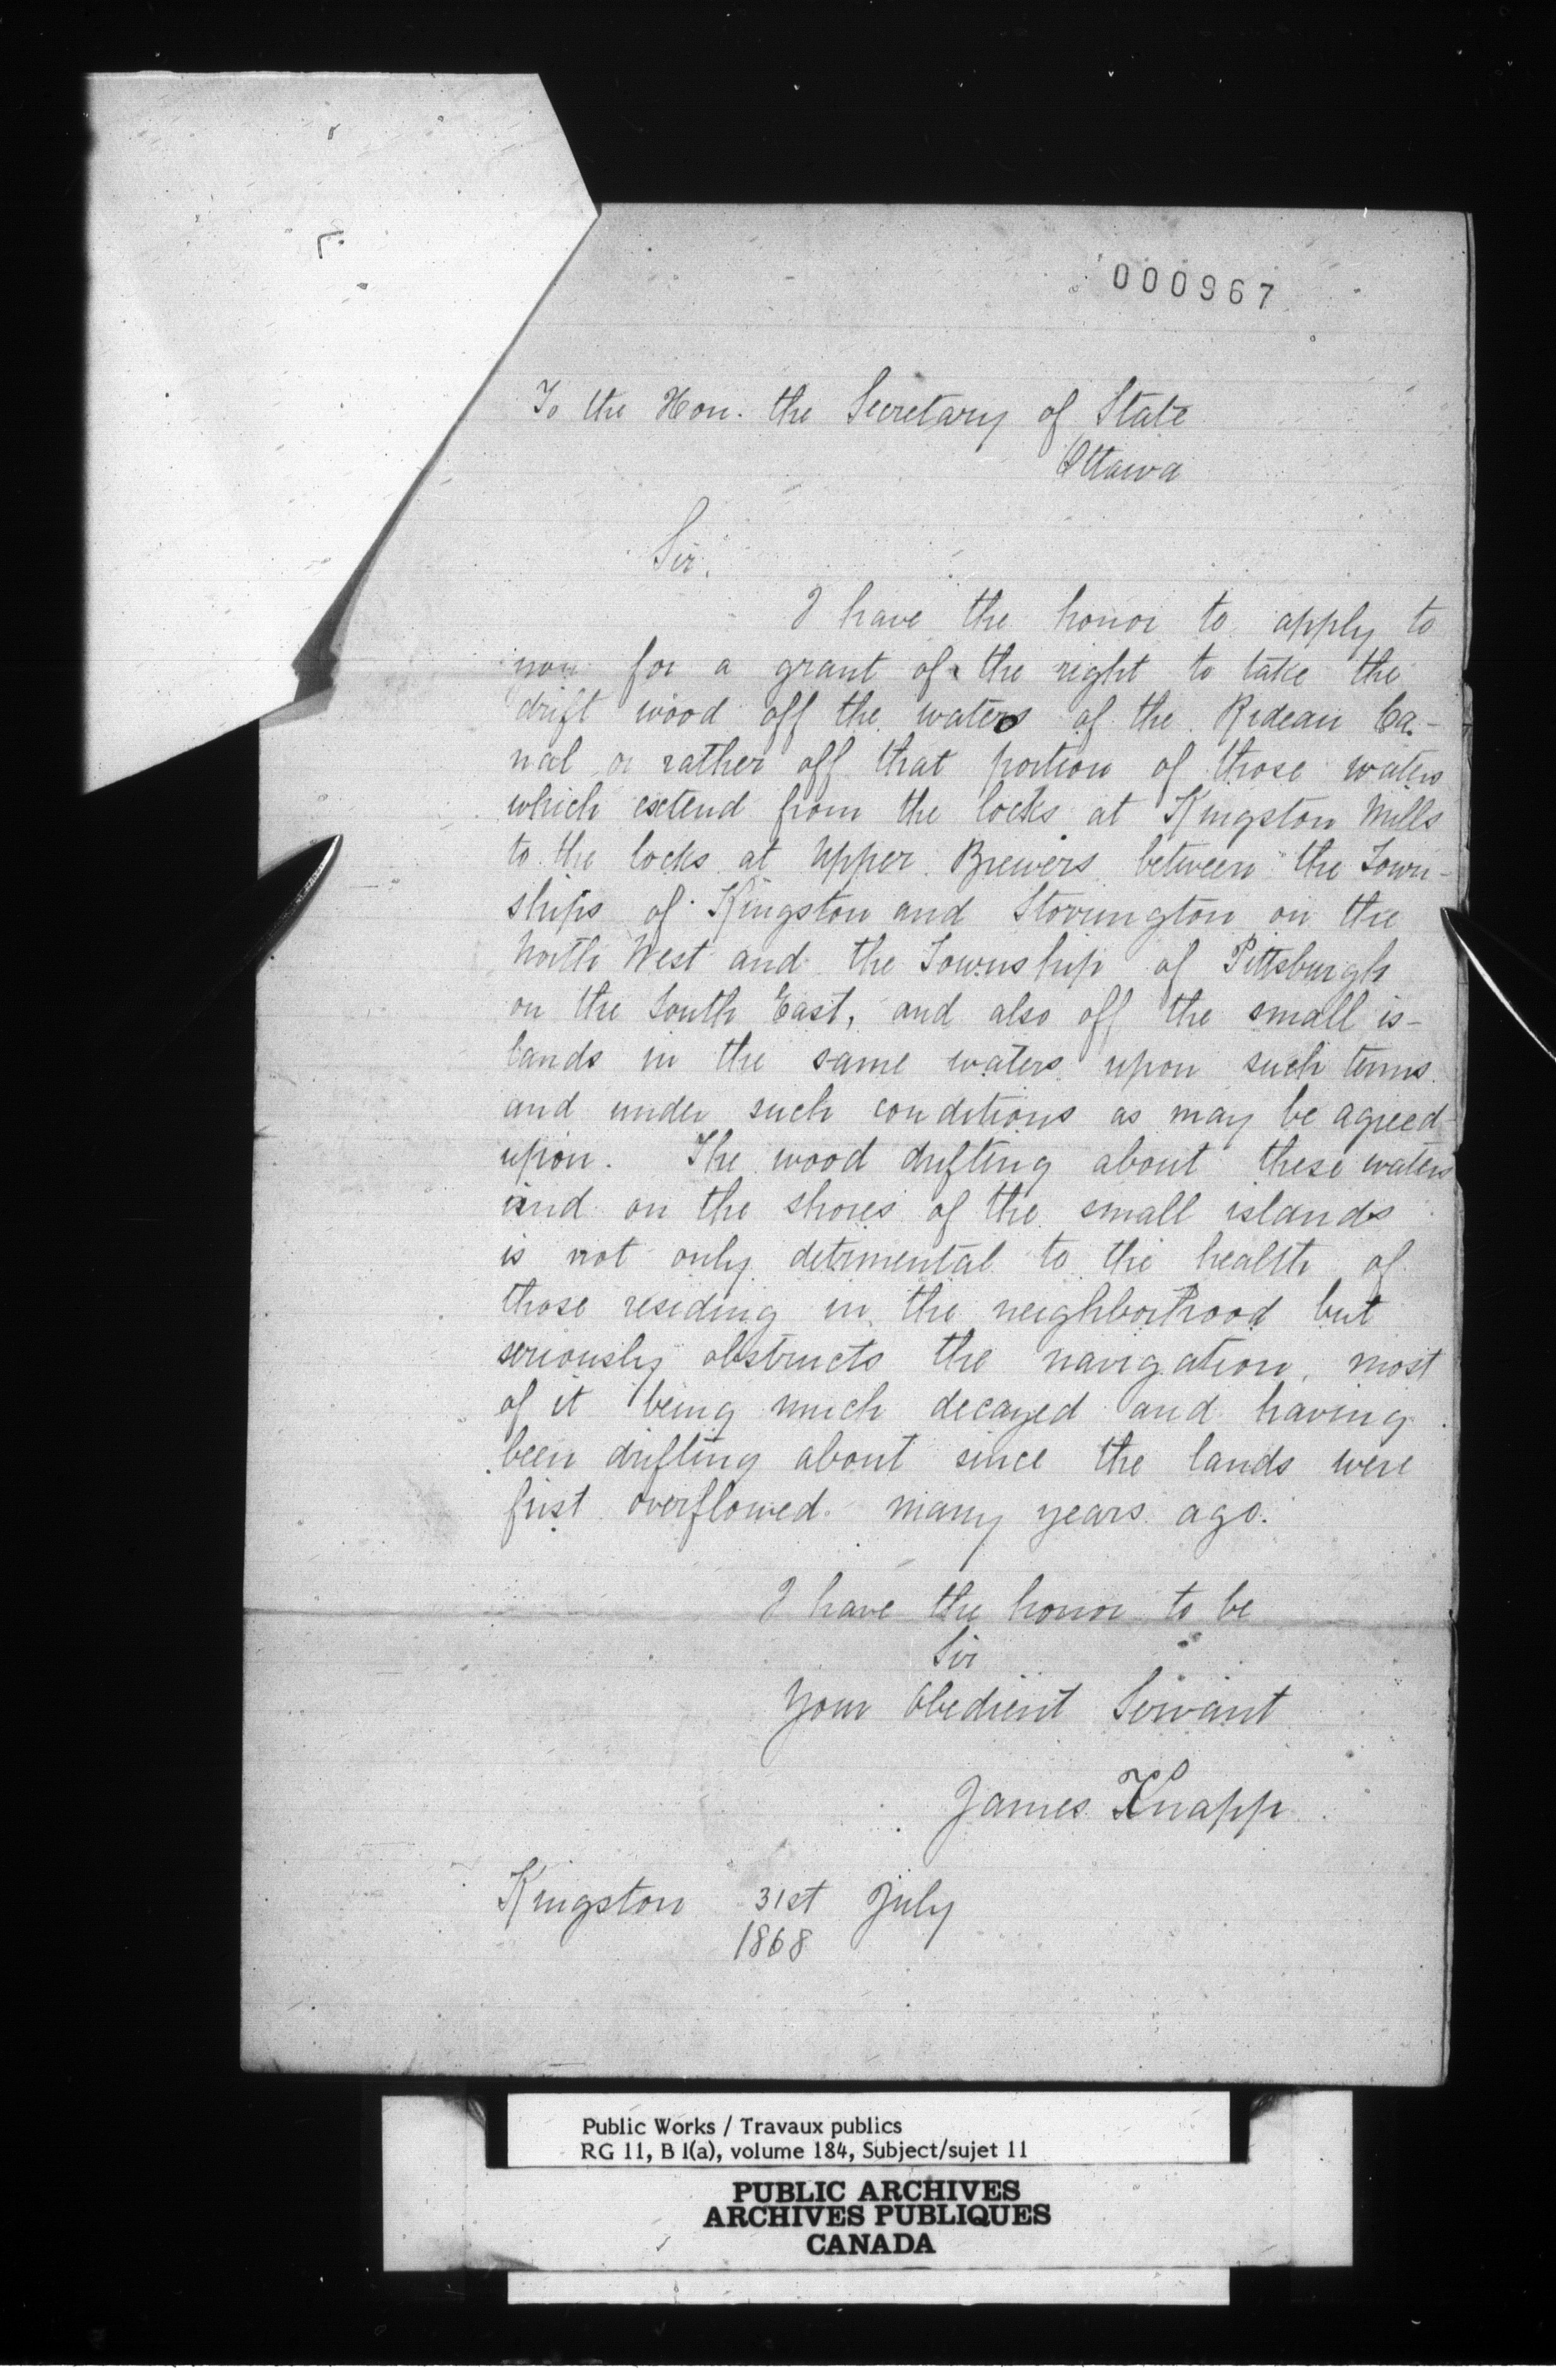 000967
To the Hon. the Secretary of State
Ottawa
Sir.
I have the honor to apply to
you for a grant of the right to take the
drift wood off the waters of the Rideau Ca-
nal or rather off that portion of those waters
which extend from the locks at Kingston Mills
to the locks at Upper Brewers between the Town-
ships of Kingston and Storrington on the
North West and the Township of Pittsburgh
on the South East, and also off the small is-
lands in the same waters upon such terms
and under such conditions as may be agreed
upon. The wood drifting about these waters
and on the shores of the small islands
is not only detrimental to the health of
those residing in the neighborhood but
seriously obstructs the navigation, most
of it being much decayed and having
been drifting about since the lands were
first overflowed many years ago.
I have the honor to be
Sir
Your Obedient Servant
James Knapp
Kingston 31st July
1868
Public Works / Travaux publics
RG 11, B 1(a), volume 184, Subject/sujet 11
PUBLIC ARCHIVES
ARCHIVES PUBLIQUES
CANADA